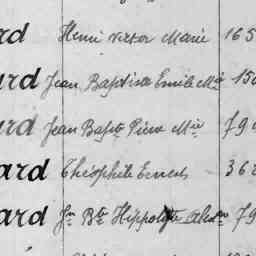 rd Henri Victor Marie 165
ard Jean Baptiste Emile Mie 150
ard Jean Bapte Pierre Mie 79
ard Théophile Ernest 362
ard Jn Bte Hippolyte 79